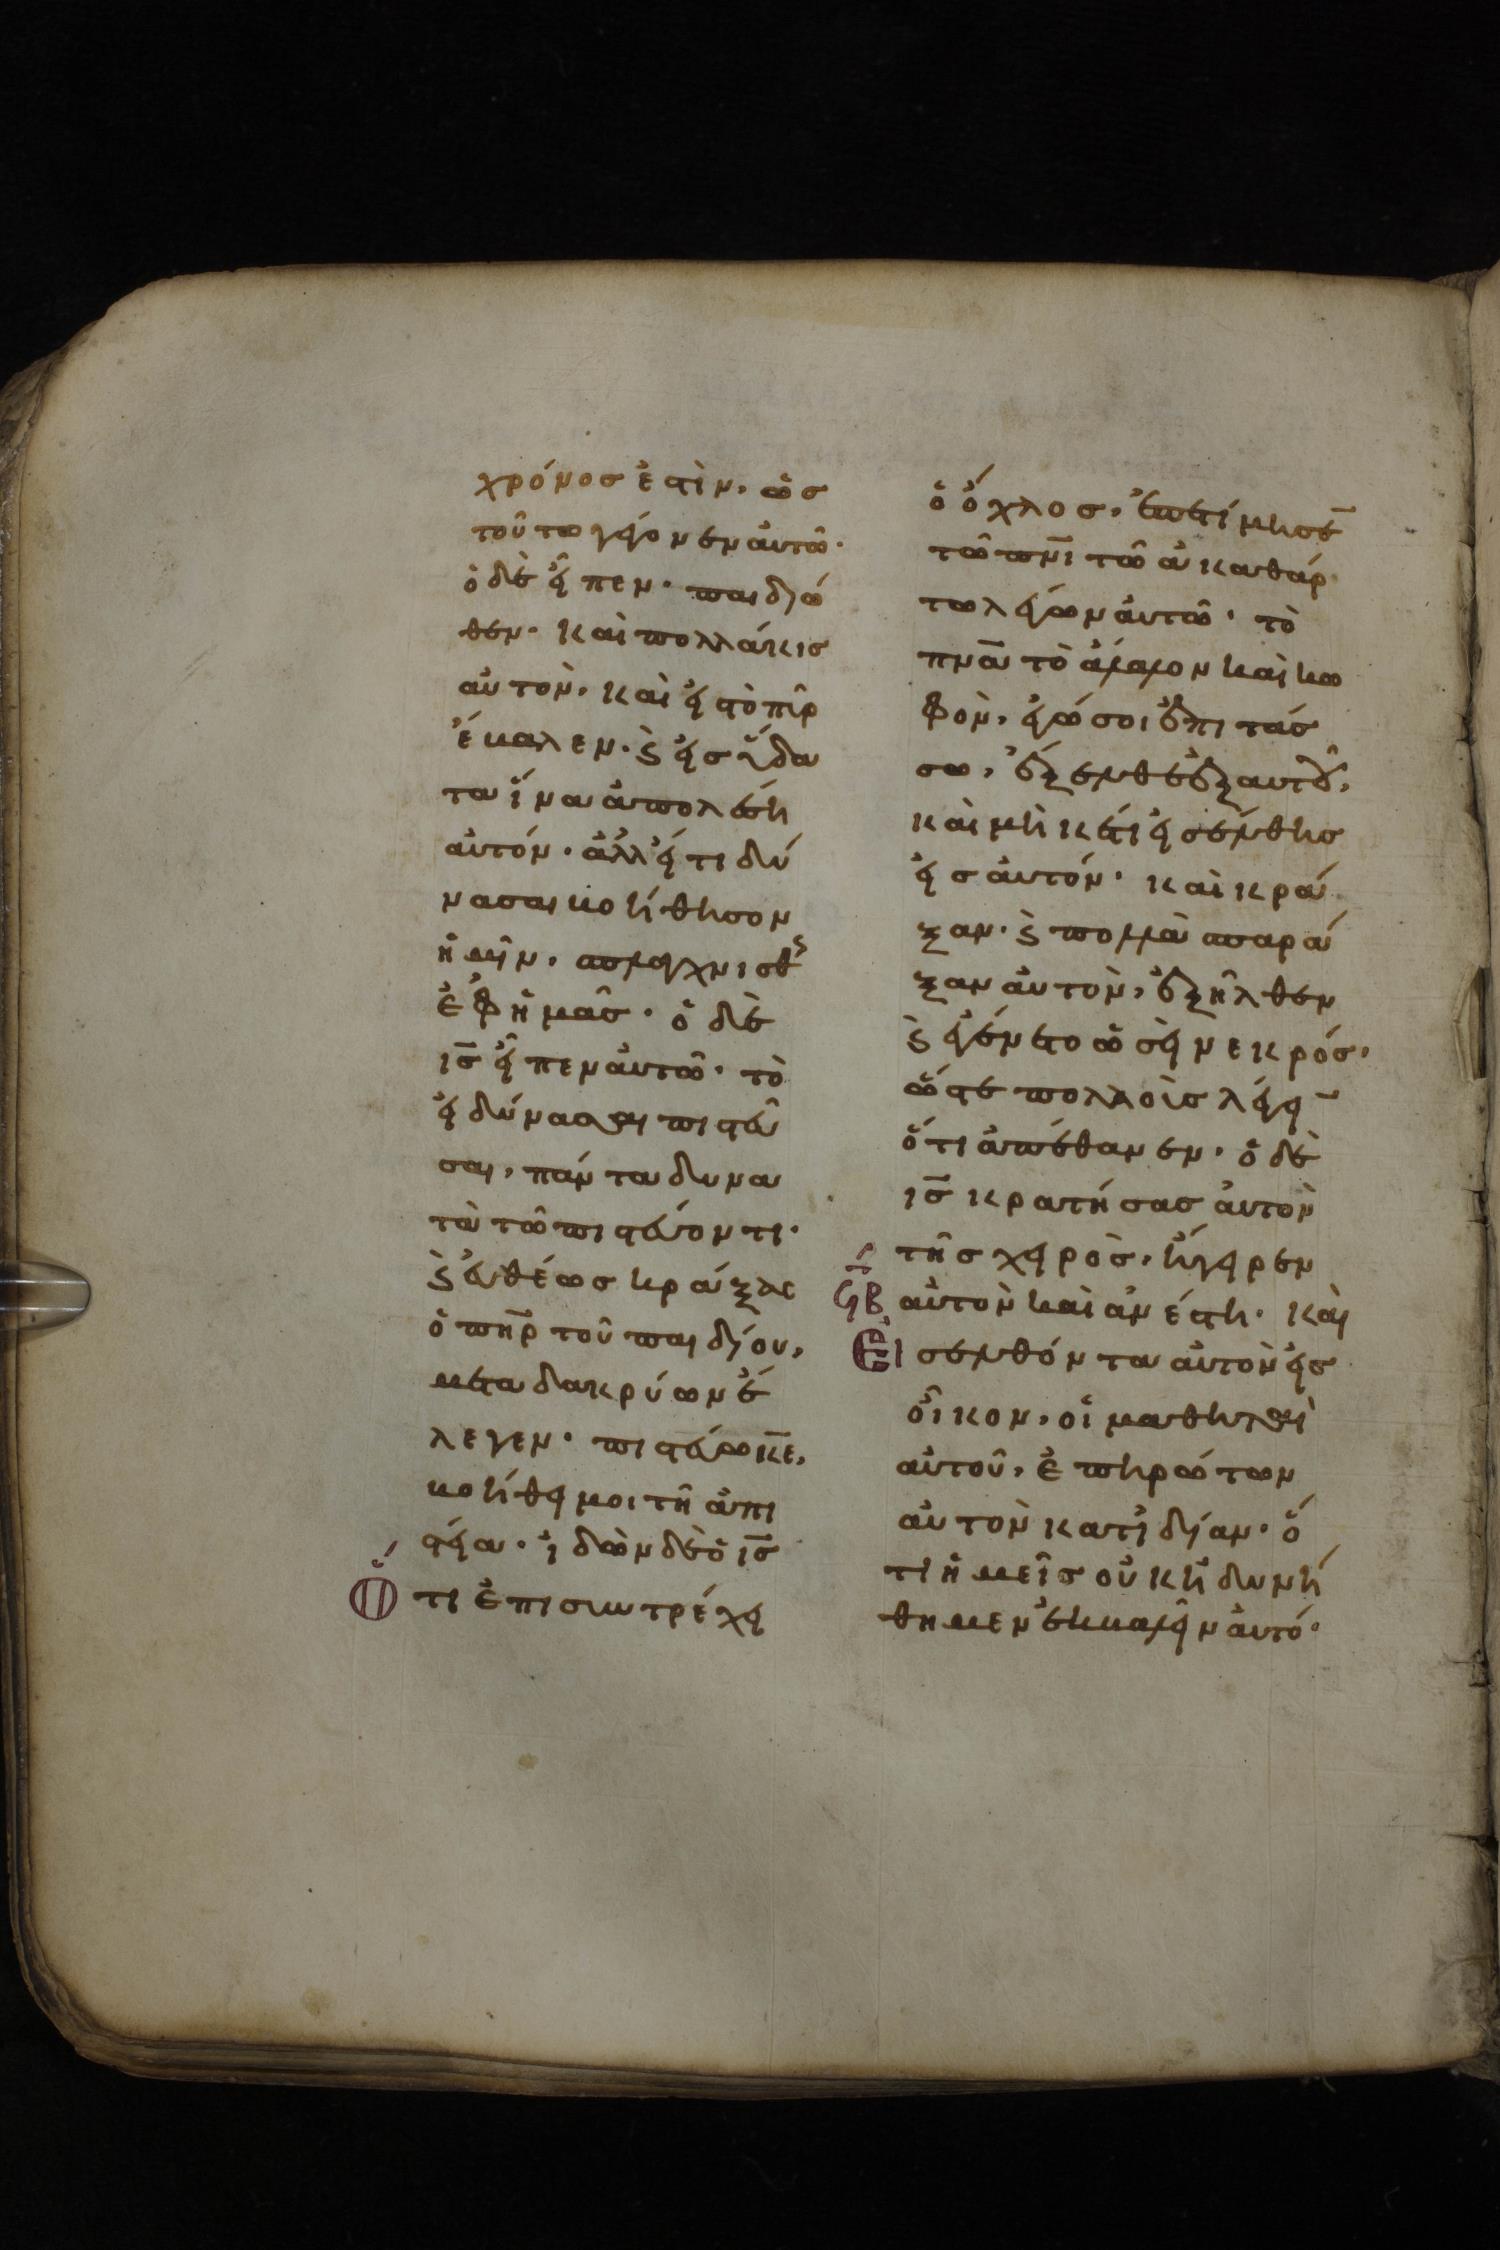 χρόνοσ ἐστὶν, ὡσ
τοῦτω γέιονεν ἀυτῶ·
ὁ δὲ εἶπεν· παιδιώ
θεν· καὶ πολλάκισ
αὐτὸν, καὶ εἰσ τὸ πῦρ
ἔβαλεν· ϗ εἰσ ὕδα
τα ἵνα ἀπολέση
αὐτόν· ἀλλ' εἴ τι δύ
νασαι βοήθησον
ἡμῖν, σπλαγχνισθϛ
ἐφ ἡμᾶσ· ὁ δὲ
ι̅σ̅ εἶπεν ἀυτῶ· τὸ
εἰ δύνασαι πιστεῦ
σαι, πάντα δυνα
τὰ τῶ πιστεύοντι·
ϗ εὐθέωσ κράξασ
ὁ π̅η̅ρ̅ τοῦ παιδίου,
μετα δακρύων ἔ
λεγεν· πιστεύω κ̅ε̅,
βοήθει μοι τῆ ἀπι
στία· ἰδὼν δὲ ὁ ι̅σ̅
Ὅτι ἐπισυντρέχει
ὁ ὄχλοσ, ἐπετίμησε̅
τῶ π̅ν̅ι̅ τῶ ἀκαθάρ
τω λέγων ἀυτῶ· τὸ
π̅ν̅α̅ τὸ ἄλαλον καὶ κω
φὸν, ἐγώ σοι ἐπιτάσ
σω, ἔξελθε ἐξ αυτοῦ,
καὶ μὴ κέτι εἰσέλθησ
εἰσ ἀυτόν· καὶ κρά
ξαν· ϗ πολλὰ σπαρά
ξαν ἀυτὸν, ἐξῆλθεν
ϗ ἐγένετο ὡσεὶ νεκρόσ,
ὥστε πολλοὶσ λέγει̅
ὅτι ἀπέθανεν· ὁ δὲ
ι̅σ̅ κρατήσασ ἀυτὸν
τῆσ χειρὸσ, ἤγειρεν
αὐτὸν καὶ ἀνέστη· καὶ
Εἰσελθόντα αὐτὸν εἰσ
οἶκον, οἱ μαθηταὶ
αὐτοῦ, ἐπηρώτων
αὐτὸν κατ ἰδίαν· ὅ
τι ἡμεῖσ οὐκ ἠδυνή
θημεν ἐκβαλεῖν ἀυτό·